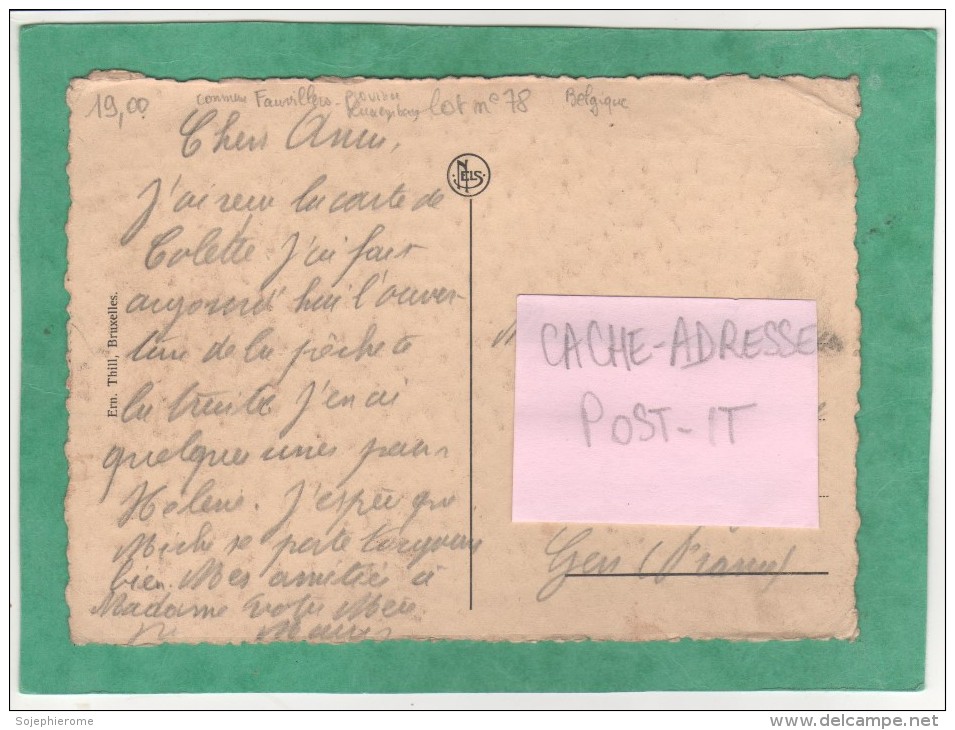 19,00
commune Fauvillers - Province Luxembourg lot n° 78 Belgique
Chers Amis,
J'ai reçu la carte de
Colette J'ai fait
aujourd'hui l'ouver-
ture de la pêche à
la truite J'en ai
quelques unes pour
Hélène. J'espère que
Miche se porte toujours
bien. Mes amitiés à
Madame votre Mère.
NELS
Ern. Thill, Bruxelles.
CACHE-ADRESSE
POST-IT
Gers (France)
Sojephierome
www.delcampe.net